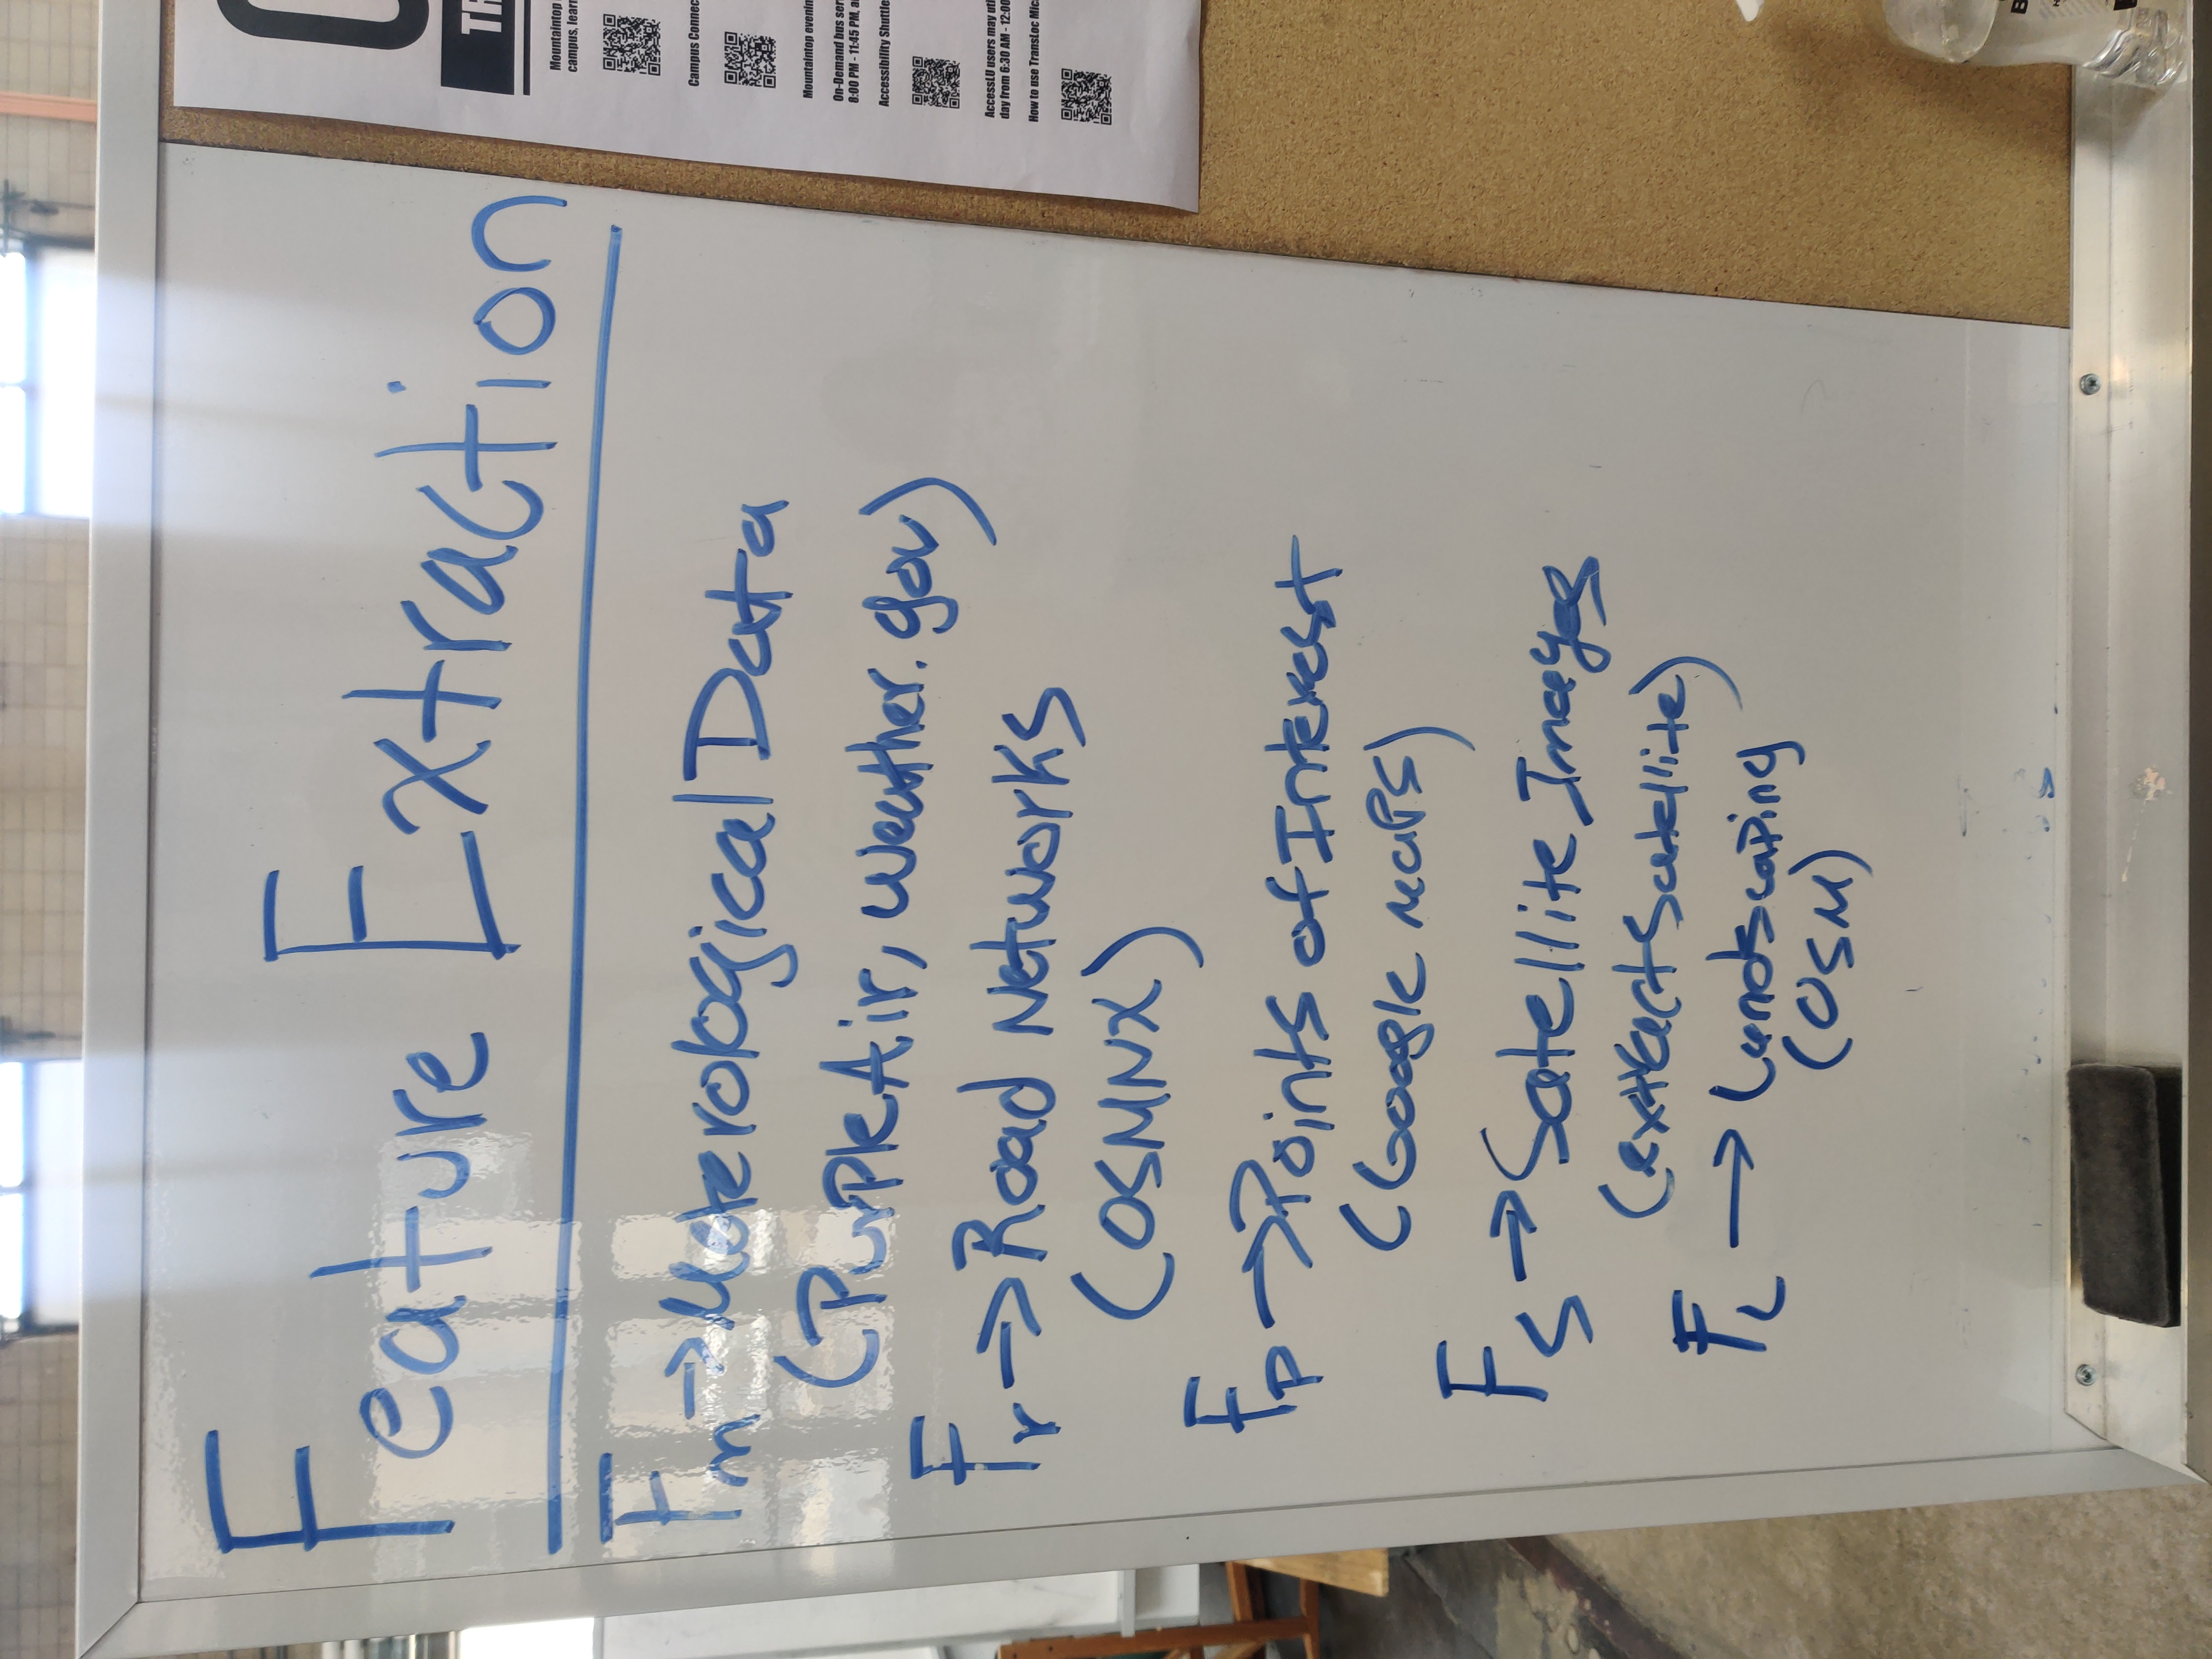 Feature Extraction
Fm → Meterological Data
(PurpleAir, weather.gov)
Fr → Road Networks
(OSMNX)
Fp → Points of Interest
(Google maps)
Fs → Satellite Images
(extractSatellite)
FL → Landscaping
(OSM)
Mountaintop
campus, learn
Campus Connec
Mountaintop evenin
On-Demand bus ser
8:00 PM - 11:45 PM, a
Accessibility Shuttle
AccessLU users may uti
day from 6:30 AM - 12:00
How to use TransLoc Mic